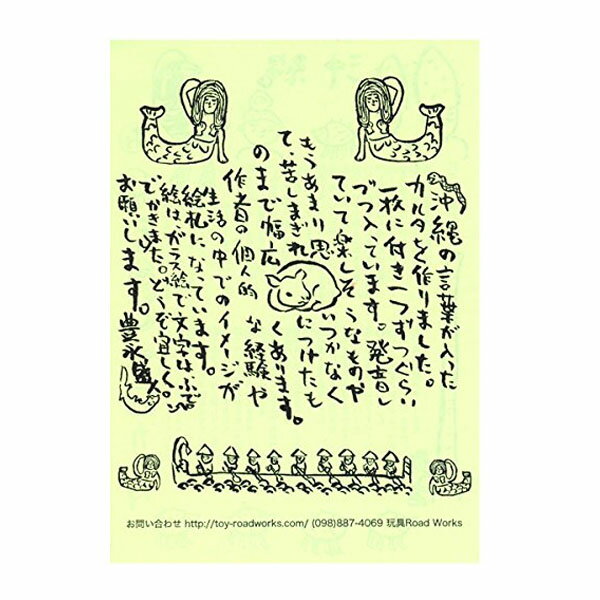 沖縄の言葉が入った
カルタを作りました。
一枚に付き一つずつぐらい
づつ入っています。発音し
ていて楽しそうなものや
もうあまり思いつかなく
て、苦しまぎれにつけたも
のまで幅広くあります。
作者の個人的な経験や
生活の中でのイメージが
絵札になっています。
絵はガラス絵で文字はふでペン
でかきました。どうぞ宜しく。
お願いします。豊永盛人
お問い合わせ http://toy-roadworks.com/ (098)887-4069 玩具Road Works